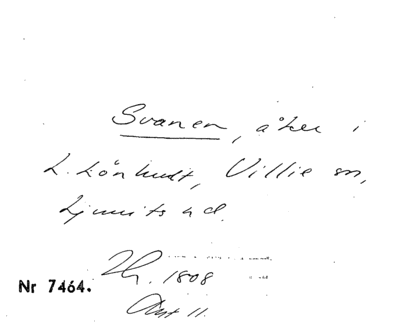 Svanen, åker i
L. Lönhult, Villie sn,
Ljunits hd.
Zh. 1808
Nr 7464.
Akt 11.